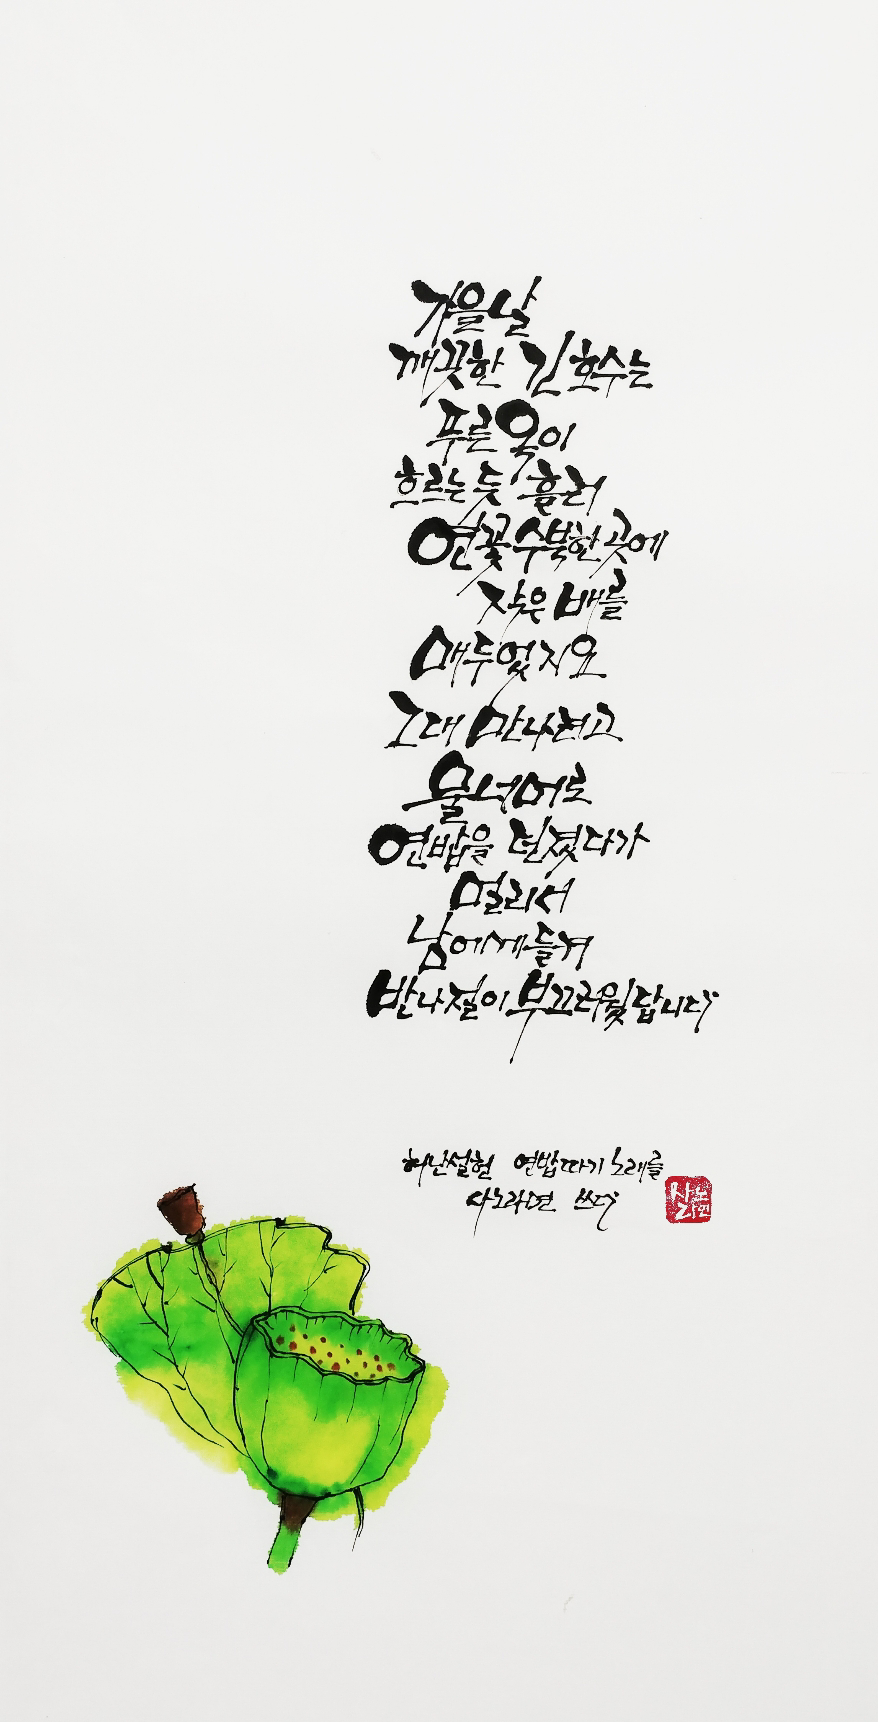 가을날
깨끗한 긴 호수는
푸른 옥이
흐르는 듯 흘러
연꽃 수북한 곳에
작은 배를
매두었지요
그대 만나려고
물 너머로
연밥을 던졌다가
멀리서
남에게 들켜
반나절이 부끄러웠답니다
허난설헌 연밥따기 노래를
사노라면 쓰다
사노라면